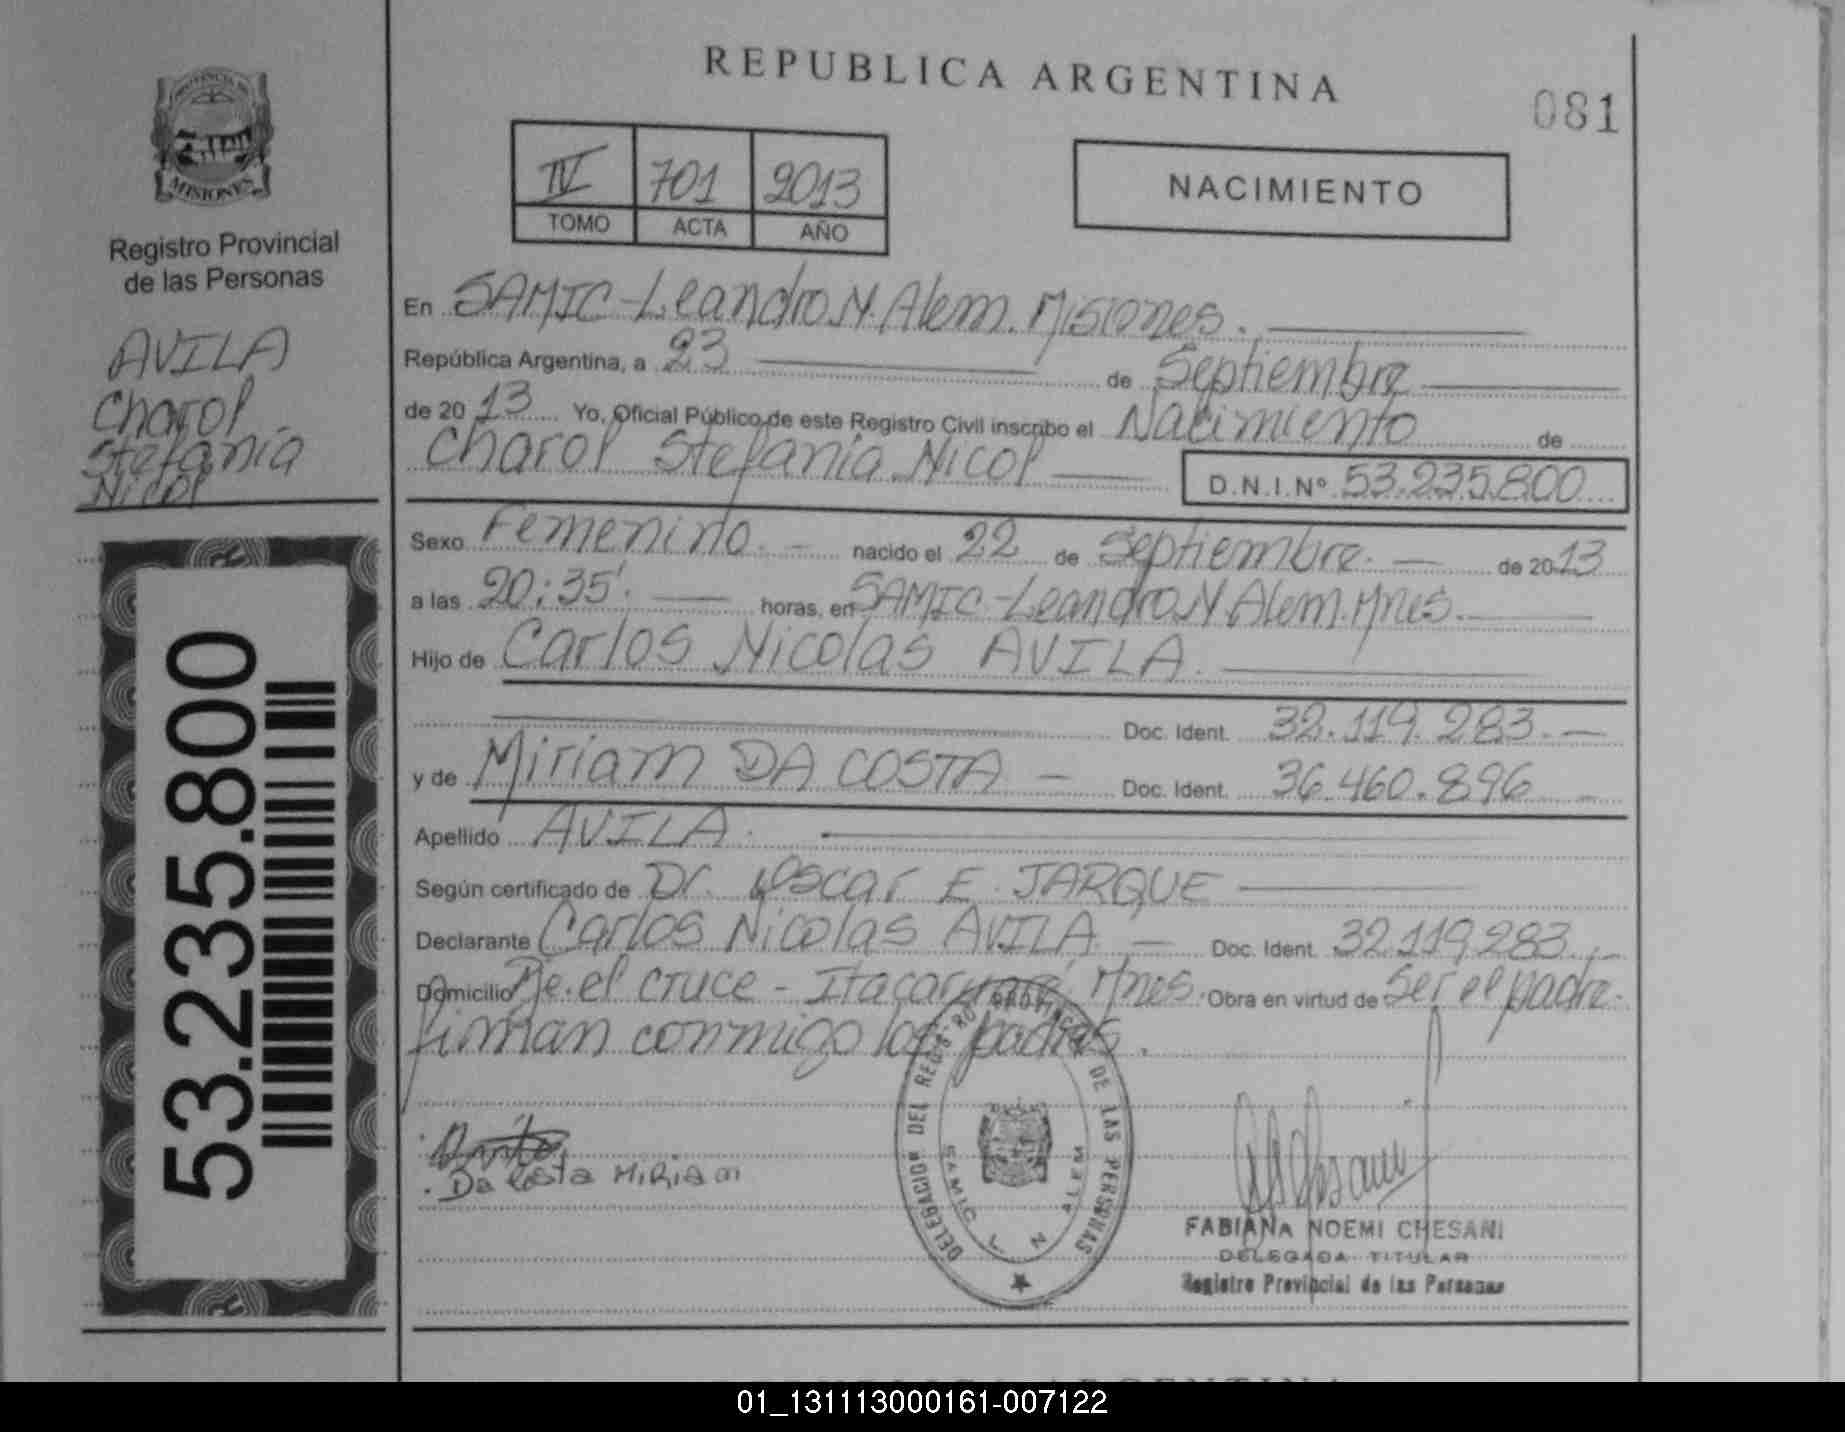 REPUBLICA ARGENTINA
081
PROVINCIA DE
MISIONES
Registro Provincial
de las Personas
AVILA
Charol
Stefanía
Nicol
53.235.800
IV 701 2013
TOMO ACTA AÑO
NACIMIENTO
En SAMIC-Leandro N. Alem. Misiones.
República Argentina, a 23 de Septiembre
de 2013 Yo, Oficial Público de este Registro Civil inscribo el Nacimiento de
Charol Stefanía Nicol D.N.I.Nº 53.235.800
Sexo Femenino. nacido el 22 de Septiembre. de 2013
a las 20:35'. horas, en SAMIC-Leandro N Alem. Mnes.
Hijo de Carlos Nicolas AVILA.
Doc. Ident. 32.119.283.
y de Miriam DA COSTA Doc. Ident. 36.460.896
Apellido AVILA.
Según certificado de Dr. Oscar E. JARQUE
Declarante Carlos Nicolas AVILA Doc. Ident. 32.119.283.
Domicilio el cruce - Itacaruaré, Mnes. Obra en virtud de Ser el padre.
firman conmigo los padres.
Da Costa Miriam
DELEGACION DEL REGISTRO PROVINCIAL DE LAS PERSONAS
SAMIC L N ALEM
FABIANA NOEMI CHESANI
DELEGADA TITULAR
Registro Provincial de las Personas
01_131113000161-007122